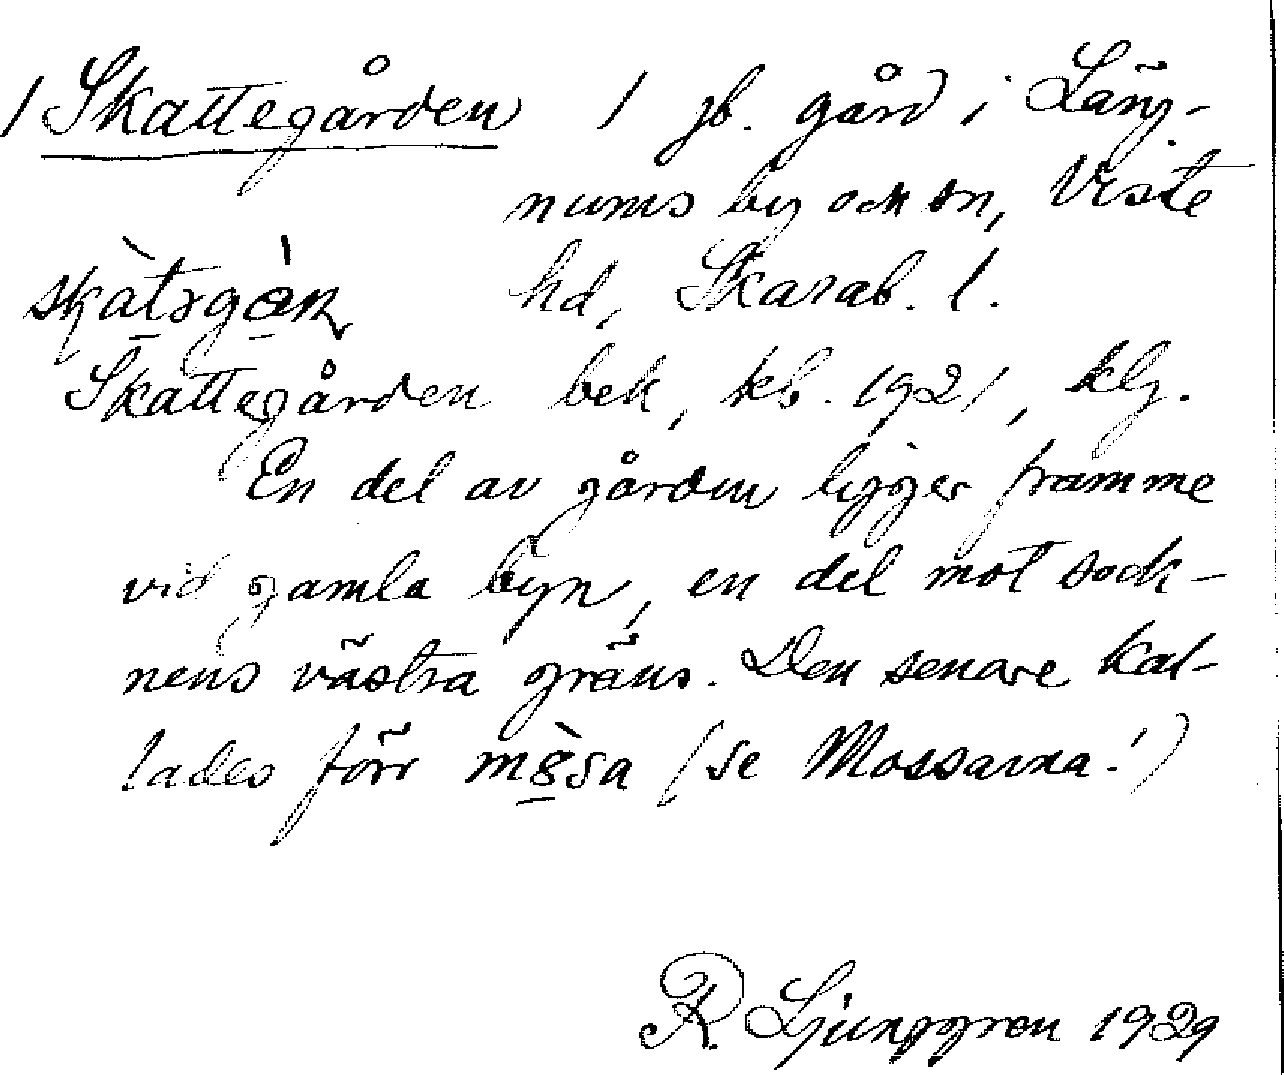 1 Skattegården 1 jb. gård i Läng-
nums by och sn, Viste
skàtəgàɳ hd, Skarab. l.
Skattegården bek, kb. 1921, klg.
En del av gården ligger framme
vid gamla byn, en del mot sock-
nens västra gräns. Den senare kal-
lades förr (se Mossarna!)
R. Ljunggren 1929